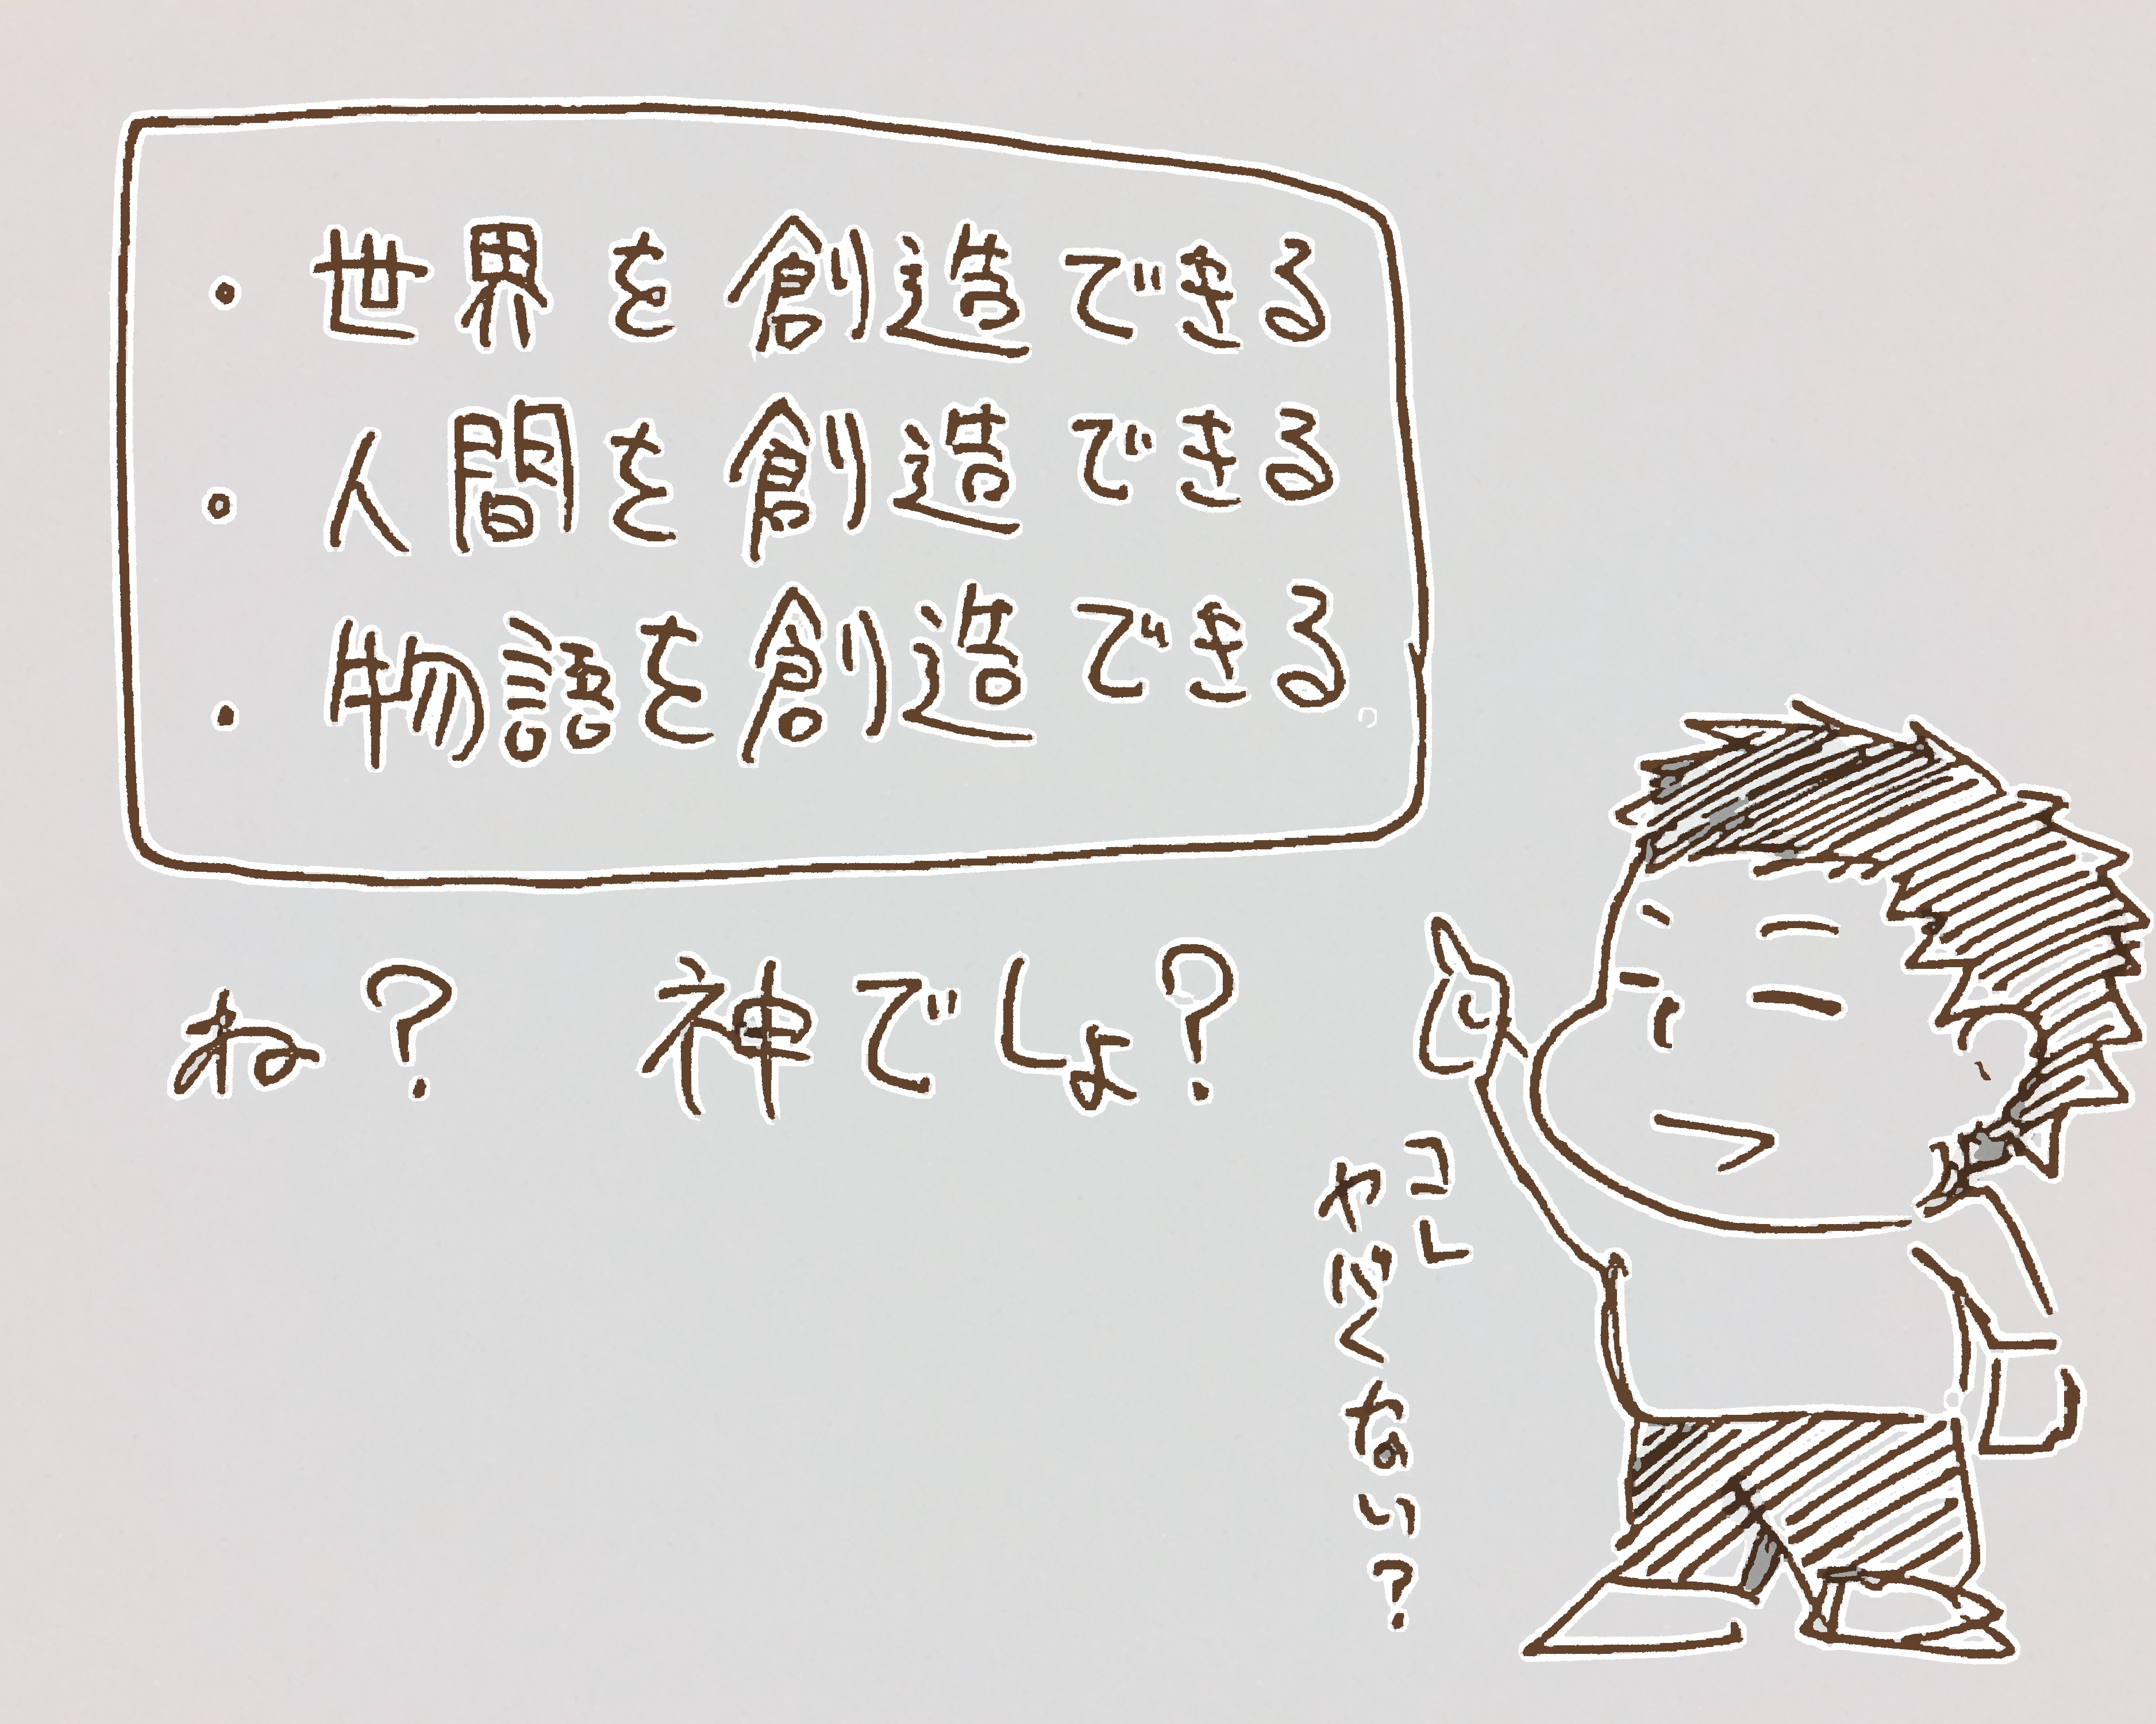 ・世界を創造できる
・人間を創造できる
・物語を創造できる。
ね？ 神でしょ？
コレ
やばくない？